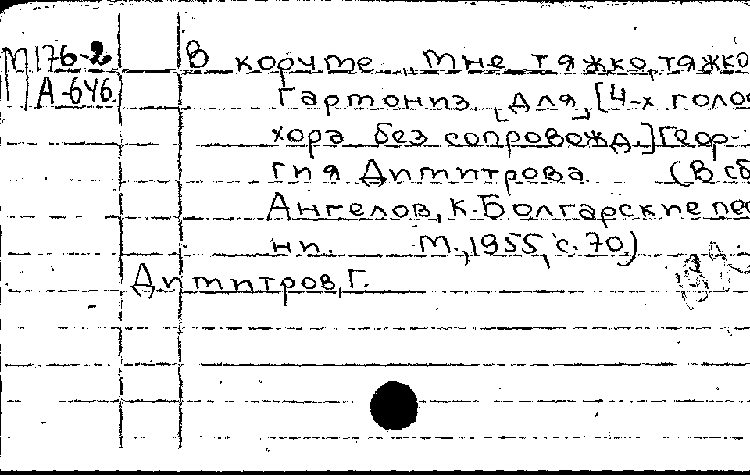 М176-2 В корчме „Мне тяжко, тяжко
А-646 Гармониз. [для] [4-х голо
хора без сопровожд.] Геор-
гия Димитрова (В сб
Ангелов, К. Болгарские пес
ни. М., 1955, с. 70)
Димитров, Г.